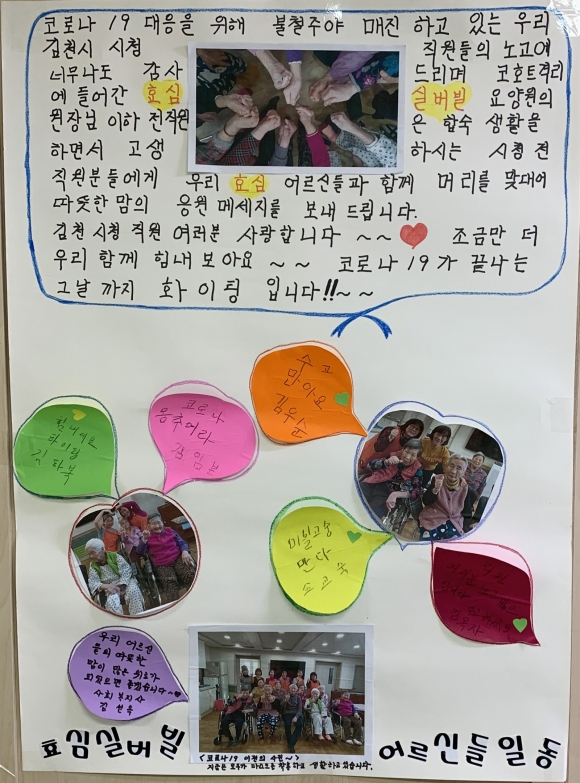 코로나 19 대응을 위해 불철주야 매진 하고 있는 우리
김천시 시청 직원들의 노고에
너무나도 감사 드리며 코호트격리
에 들어간 효심 실버빌 요양원의
원장님 이하 전직원 은 합숙 생활을
하면서 고생 하시는 시청 전
직원분들에게 우리 효심 어르신들과 함께 머리를 맞대어
따뜻한 맘의 응원 메세지를 보내 드립니다.
김천 시청 직원 여러분 사랑합니다 ~~ 조금만 더
우리 함께 힘내 보아요 ~~ 코로나 19가 끝나는
그날 까지 화이팅 입니다!!~~
수고
많아요
김우순
코로나
멈추어라
김임분
힘내이요
화이팅
김화복
미일고송
만다
우리 어르신
들의 따뜻한
맘이 많은 위로가
되었으면 좋겠습니다~
사회 복지사
김선옥
<코로나19 이전의 사진~>
지금은 모두가 마스크를 착용하고 생활하고 있습니다.
효심실버빌 어르신들일동